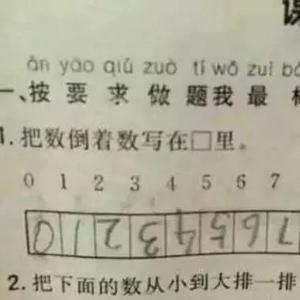 àn yāo qiú zuò tí wǒ zuì
一、按 要 求 做 题 我 最
1. 把数倒着数写在□里。
0 1 2 3 4 5 6 7
0 1 2 3 4 5 6 7
2. 把下面的数从小到大排一排